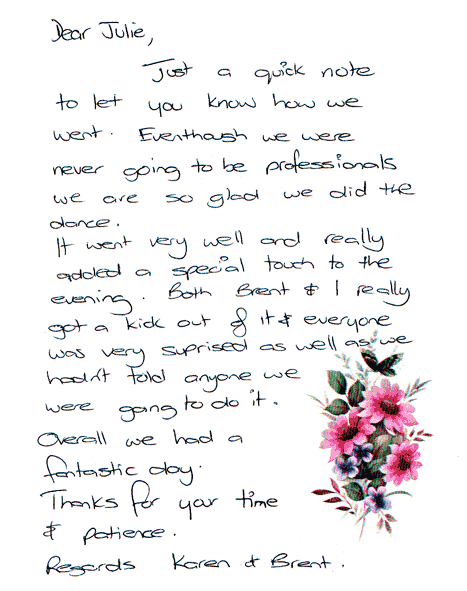 Dear Julie,
Just a quick note
to let you know how we
went. Eventhough we were
never going to be professionals
we are so glad we did the
dance.
It went very well and really
added a special touch to the
evening. Both Brent & I really
got a kick out of it & everyone
was very suprised as well as we
hadn't told anyone we
were going to do it.
Overall we had a
fantastic day.
Thanks for your time
& patience.
Regards Karen & Brent.